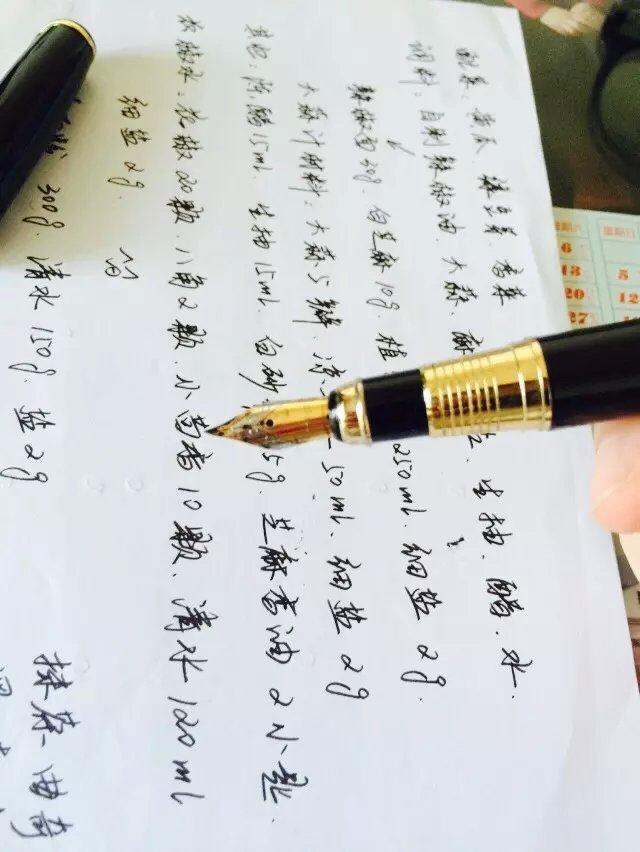 配菜、黄瓜、绿豆芽 香菜
调料：自制辣椒油、大蒜、生抽、醋、水
辣椒面50g 白芝麻10g 植 250ml、细盐2g
大蒜汁的料：大蒜5瓣、凉 50ml、细盐2g
其他：陈醋15ml 生抽15ml 白砂 5g 芝麻香油2小匙
花椒水：花椒20颗 八角2颗、小茴香10颗、清水120ml
细盐2g
300g 清水150g 盐2g
抹茶曲奇
星期六
6 5
13 12
20
27